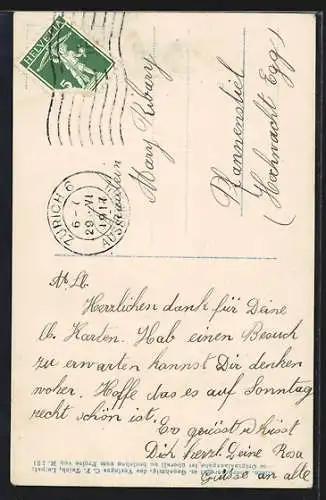 HELVETIA
5
ZÜRICH 6
6-7
29 VI
1914
Fräulein
Mary Ribary
Pfannenstiel
(Hochwacht Egg)
Herzlichen dank für Deine
lb. Karten. Hab einen Besuch
zu erwarten kannst Dir denken
woher. Hoffe das es auf Sonntag
recht schön ist.
Es grüsst u küsst
Dich herzl. Deine Rosa
Grüsse an alle